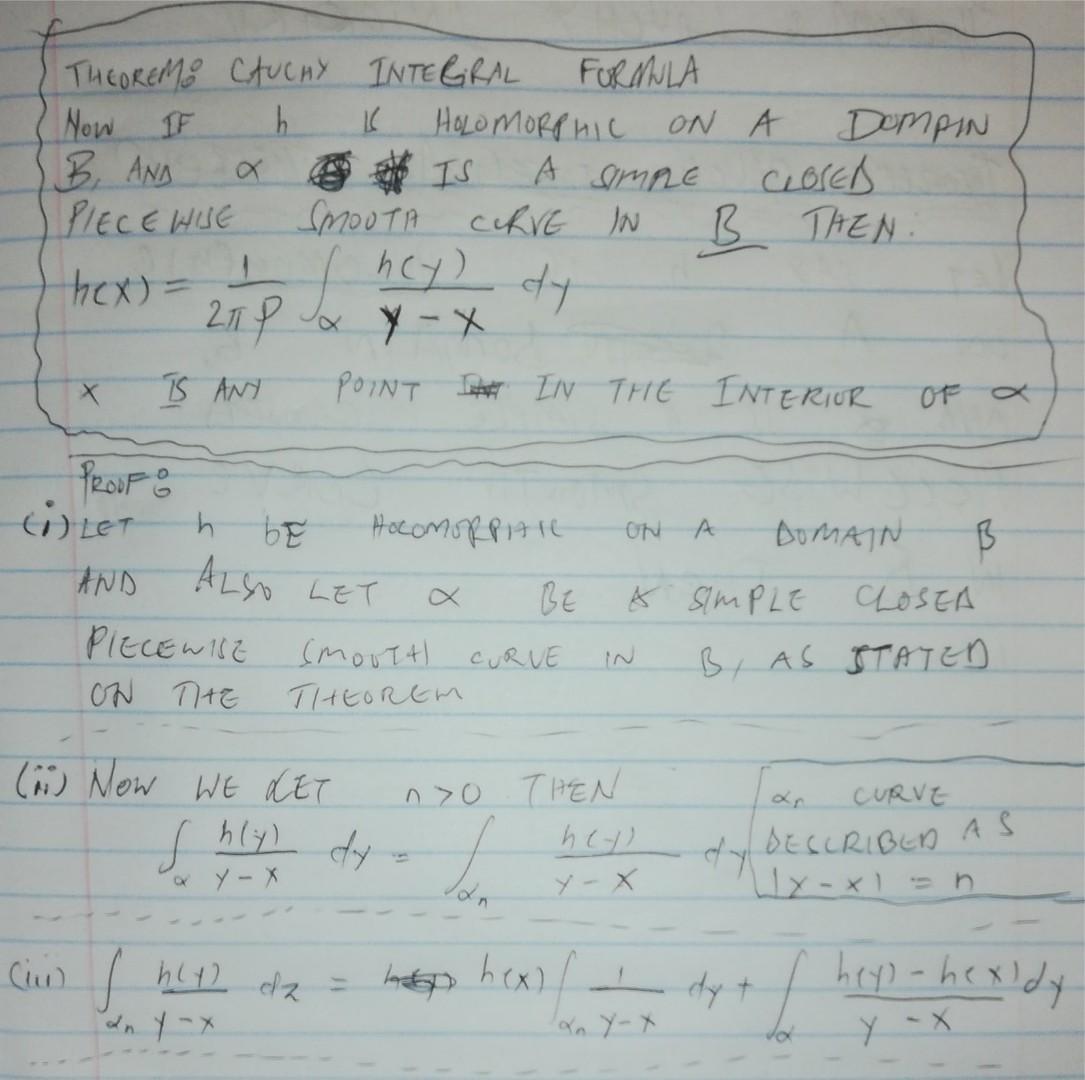 THEOREM: CAUCHY INTEGRAL FORMULA
NOW IF h IS HOLOMORPHIC ON A DOMAIN
B, AND α IS A SIMPLE CLOSED
PIECEWISE SMOOTH CURVE IN B THEN:
h(x) = \frac{1}{2πρ} ∫_α \frac{h(y)}{y - x} dy
x IS ANY POINT IN THE INTERIOR OF α
PROOF:
(i) LET h bE HOLOMORPHIC ON A DOMAIN B
AND ALSO LET α BE A SIMPLE CLOSED
PIECEWISE SMOOTH CURVE IN B, AS STATED
ON THE THEOREM
(ii) NOW WE LET n > 0 THEN
∫_α \frac{h(y)}{y - x} dy = ∫_{α_n} \frac{h(y)}{y - x} dy
α_n CURVE
DESCRIBED AS
|y - x| = n
(iii) ∫_{α_n} \frac{h(y)}{y - x} dz = h(x) ∫_{α_n} \frac{1}{y - x} dy + ∫_α \frac{h(y) - h(x)}{y - x} dy